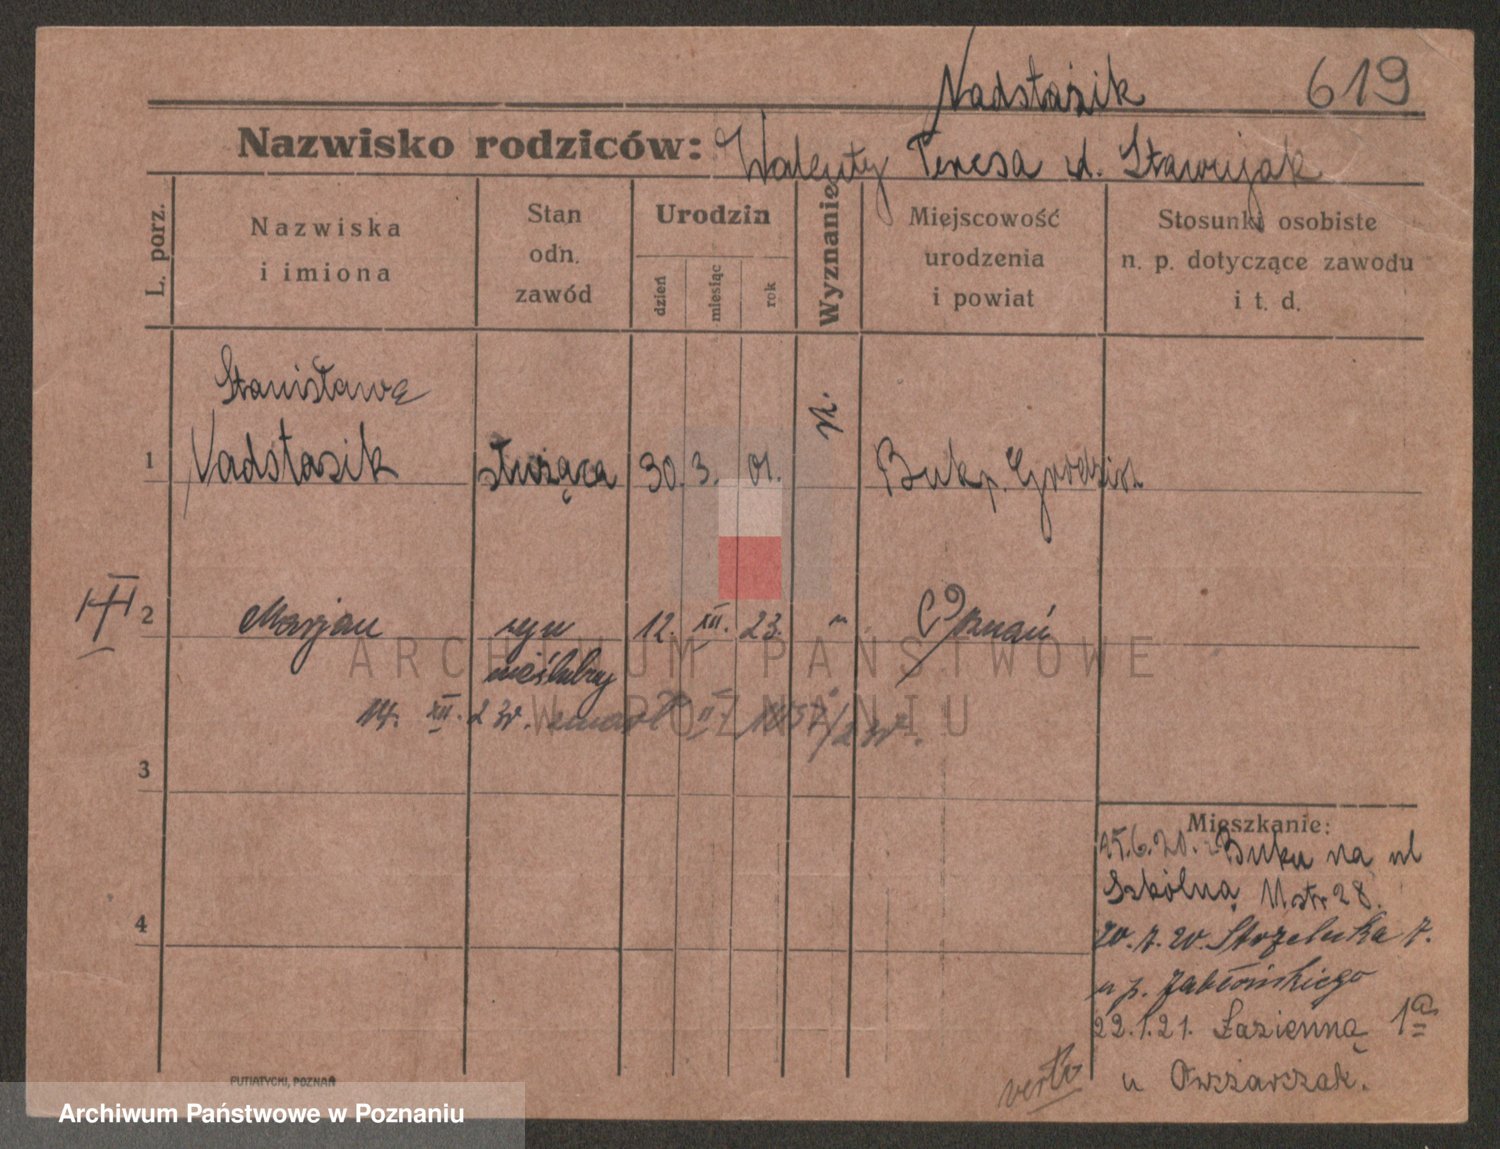 Nadstazik 619
Nazwisko rodziców: Walenty Teresa d. Stawujak
L. porz.
Nazwiska
i imiona
Stan
odn.
zawód
Urodzin
dzień
miesiąc
rok
Wyznanie
Miejscowość
urodzenia
i powiat
Stosunki osobiste
n. p. dotyczące zawodu
i t. d.
Stanisława
1 Nadstazik służąca 30. 3. 01. Buk p. Grodzisk
2 Marjan syn 12. XII. 23. " Poznań
nieślubny
14. XII. 23r. zmarł
3
4
Mieszkanie:
15.6.20. z Buku na ul
Szkólną 28.
20.7.20. Strzelecka 7.
u p. Jabłońskiego
22.1.21. Łazienna 1a
u Owczarczak.
verto
PUTIATYCKI, POZNAŃ
ARCHIWUM PAŃSTWOWE
W POZNANIU
Archiwum Państwowe w Poznaniu